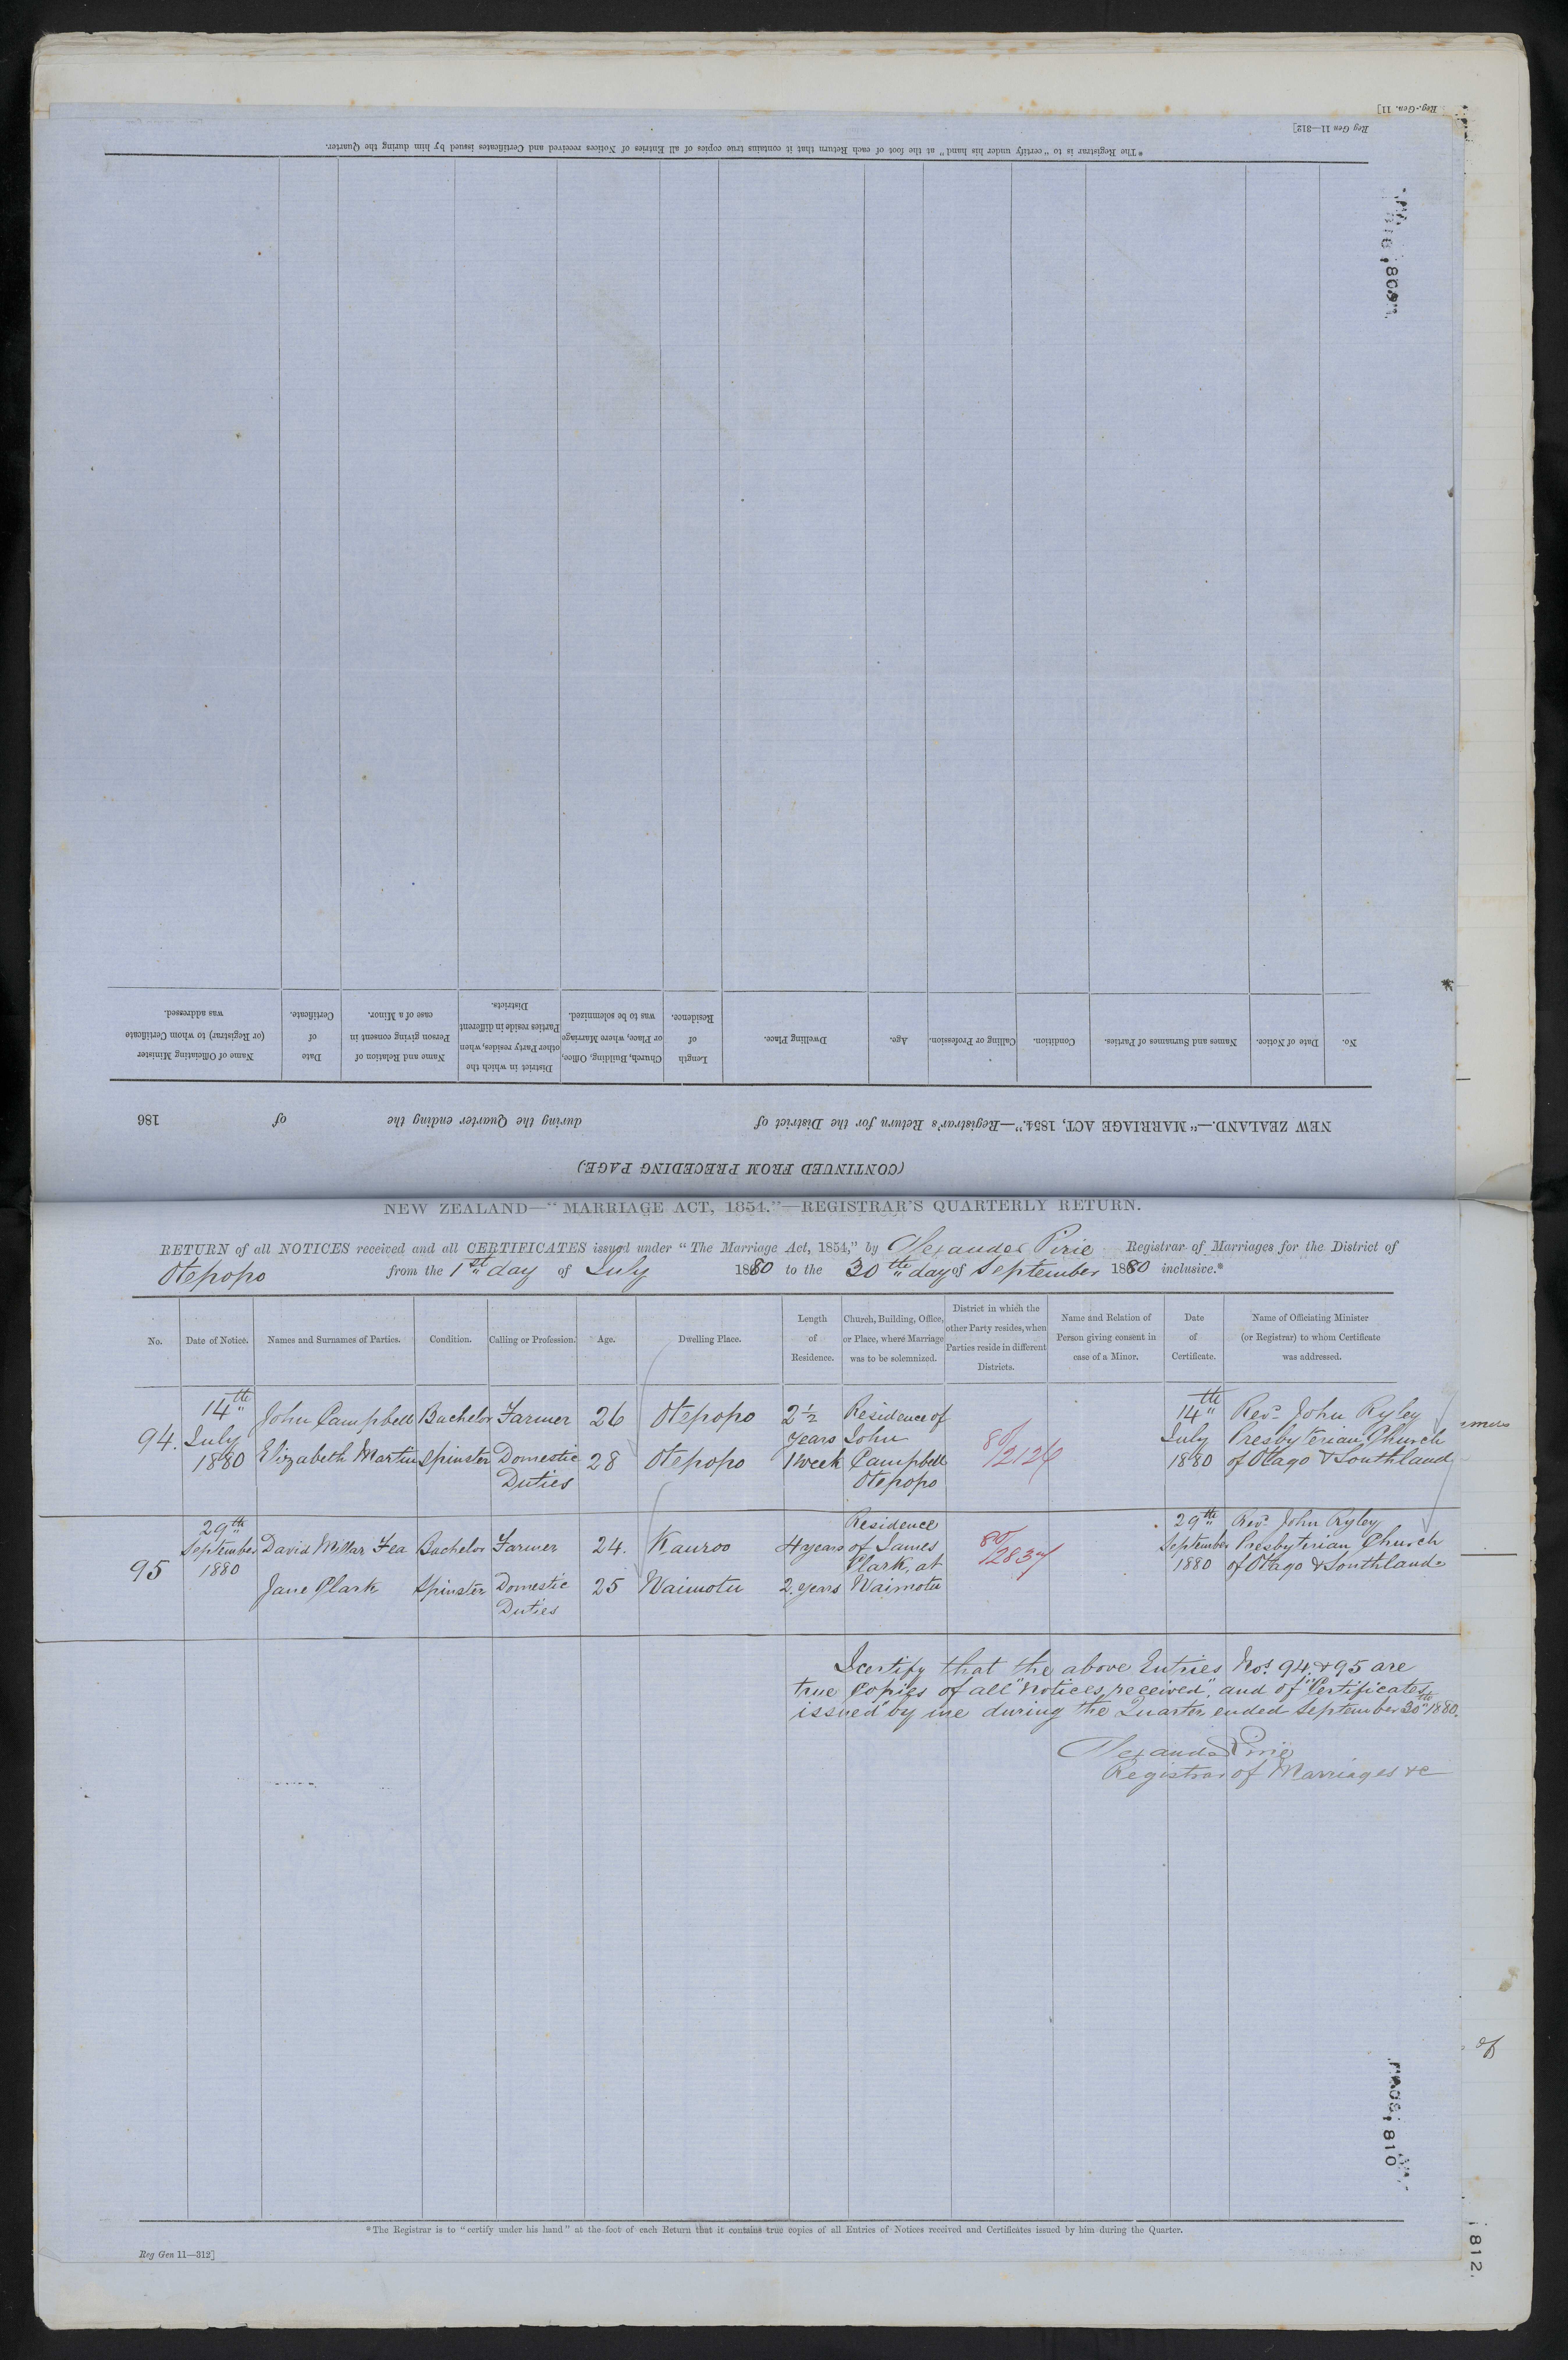 Reg.-Gen. 11]
Reg Gen 11—312]
*The Registrar is to "certify under his hand" at the foot of each Return that it contains true copies of all Entries of Notices received and Certificates issued by him during the Quarter.
(CONTINUED FROM PRECEDING PAGE.)
NEW ZEALAND.—"MARRIAGE ACT, 1854."—Registrar's Return for the District of during the Quarter ending the of 186
No.
Date of Notice.
Names and Surnames of Parties.
Condition.
Calling or Profession.
Age.
Dwelling Place.
Length
of
Residence.
Church, Building, Office,
or Place, where Marriage
was to be solemnized.
District in which the
other Party resides, when
Parties reside in different
Districts.
Name and Relation of
Person giving consent in
case of a Minor.
Date
of
Certificate.
Name of Officiating Minister
(or Registrar) to whom Certificate
was addressed.
NEW ZEALAND—"MARRIAGE ACT, 1854."—REGISTRAR'S QUARTERLY RETURN.
RETURN of all NOTICES received and all CERTIFICATES issued under "The Marriage Act, 1854," by Alexander Pirie Registrar of Marriages for the District of
Otepopo from the 1st day of July 1880 to the 30th day of September 1880 inclusive.*
No.
Date of Notice.
Names and Surnames of Parties.
Condition.
Calling or Profession.
Age.
Dwelling Place.
Length
of
Residence.
Church, Building, Office,
or Place, where Marriage
was to be solemnized.
District in which the
other Party resides, when
Parties reside in different
Districts.
Name and Relation of
Person giving consent in
case of a Minor.
Date
of
Certificate.
Name of Officiating Minister
(or Registrar) to whom Certificate
was addressed.
94.
14th
July
1880
John Campbell
Bachelor
Farmer
26
Otepopo
2½
years
Elizabeth Martin
Spinster
Domestic
Duties
28
Otepopo
1 week
Residence of
John
Campbell
Otepopo
80/2126
14th
July
1880
Revd. John Ryley
Presbyterian Church
of Otago & Southland
95
29th
September
1880
David Millar Fea
Bachelor
Farmer
24.
Kauroo
4 years
Jane Clark
Spinster
Domestic
Duties
25
Waimotu
2. years
Residence
of James
Clark, at
Waimotu
80/2837
29th
September
1880
Revd. John Ryley
Presbyterian Church
of Otago & Southland
I certify that the above Entries Nos. 94 & 95 are
true Copies of all "Notices received", and of "Certificates
issued" by me during the Quarter ended September 30th 1880.
Alexander Pirie
Registrar of Marriages &c
*The Registrar is to "certify under his hand" at the foot of each Return that it contains true copies of all Entries of Notices received and Certificates issued by him during the Quarter.
Reg Gen 11—312]
810
812
of